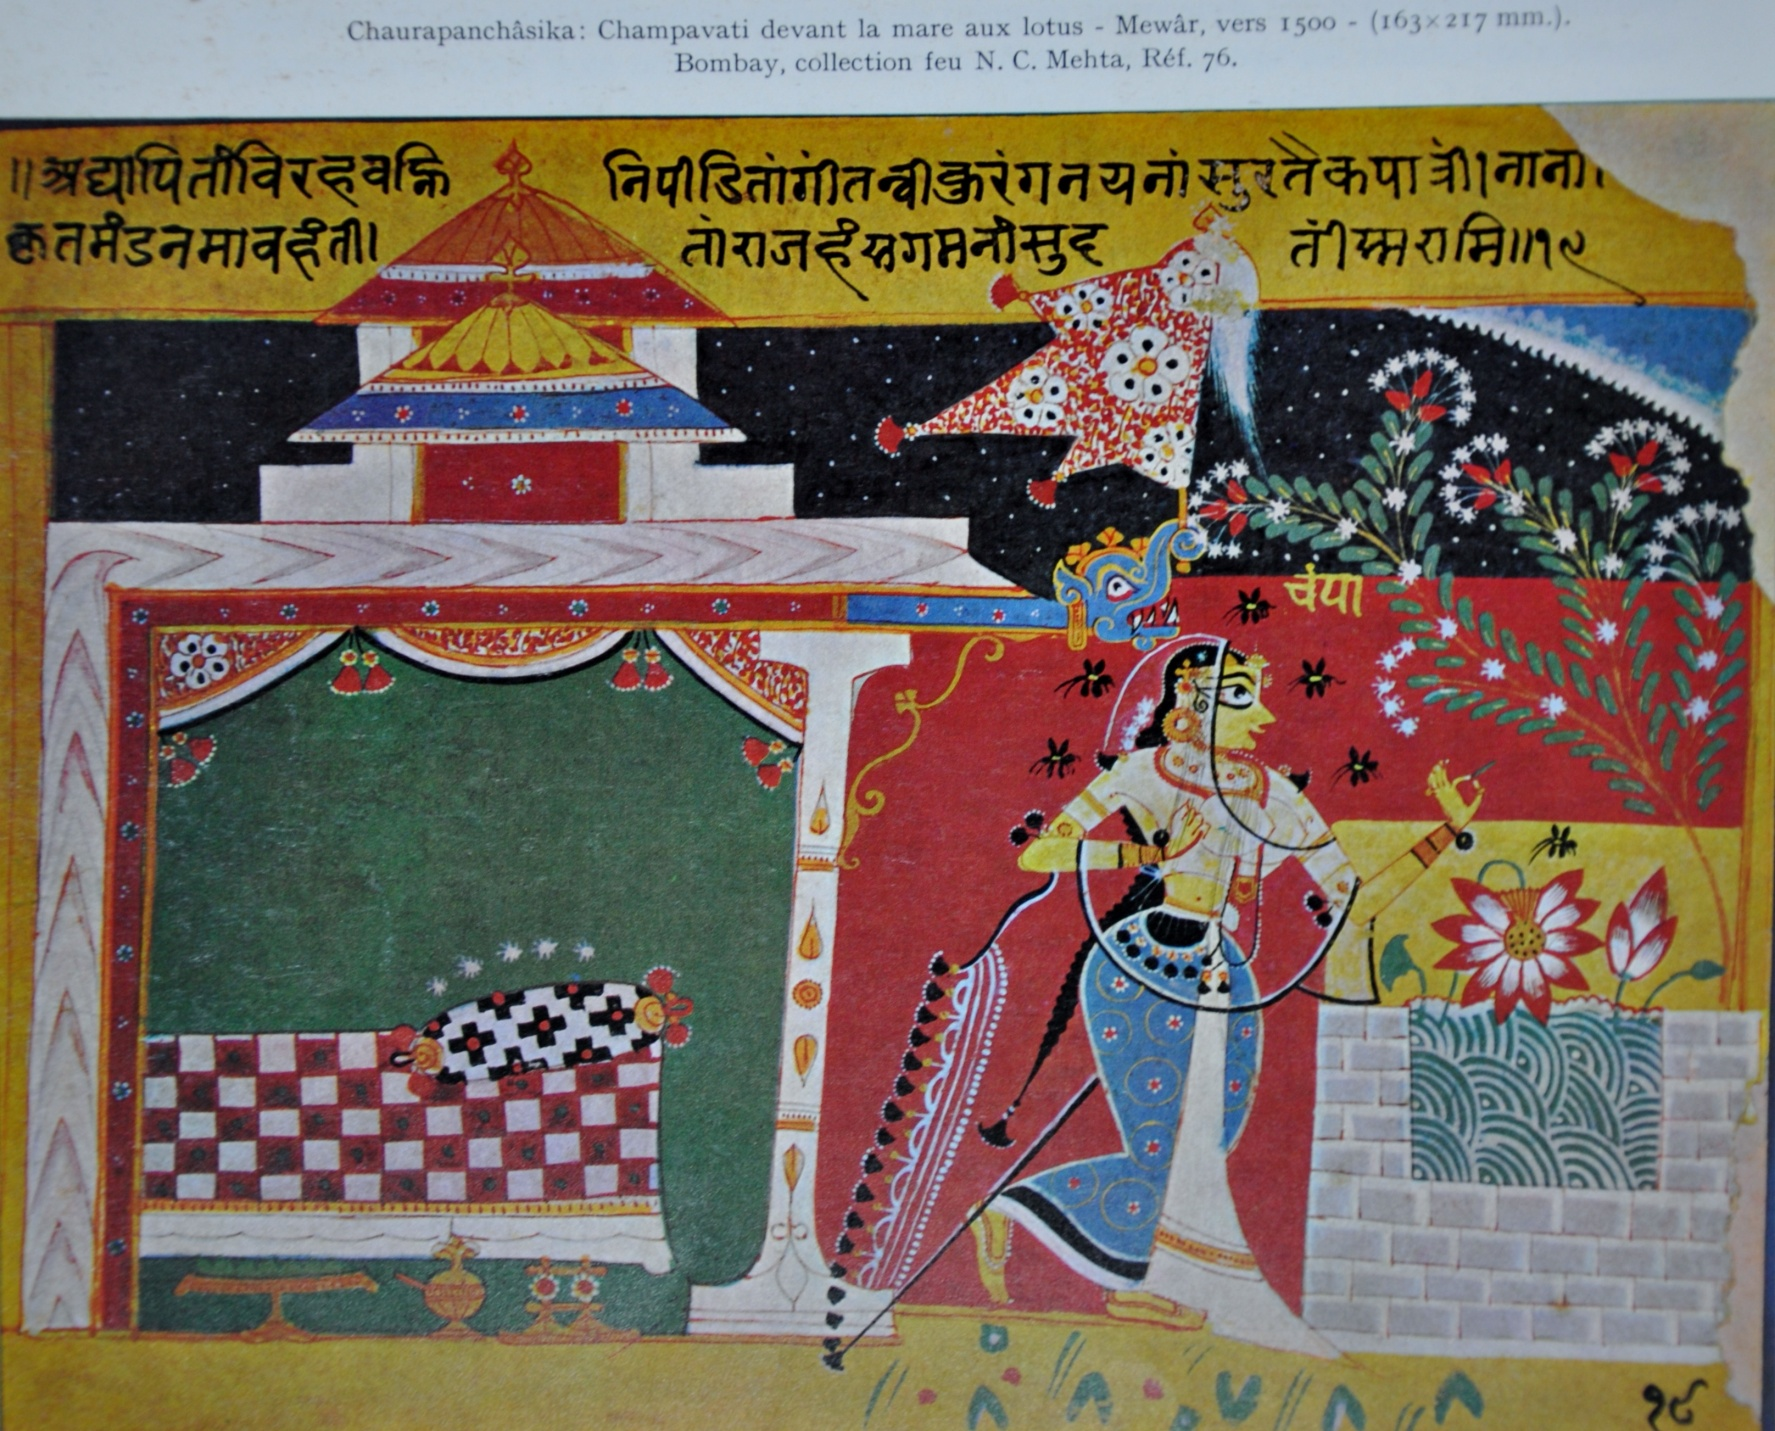 Chaurapanchâsika: Champavati devant la mare aux lotus - Mewâr, vers 1500 - (163×217 mm.).
Bombay, collection feu N. C. Mehta, Réf. 76.
॥अद्यापि तां विरहवह्नि निपीडितांगीं तन्वीं कुरंगनयनां सुरतैकपात्रीं। नाना।
कृतमंडनमावहंतीं। तां राजहंसगमनां सुद तीं स्मरामि॥१९
चंपा
१९